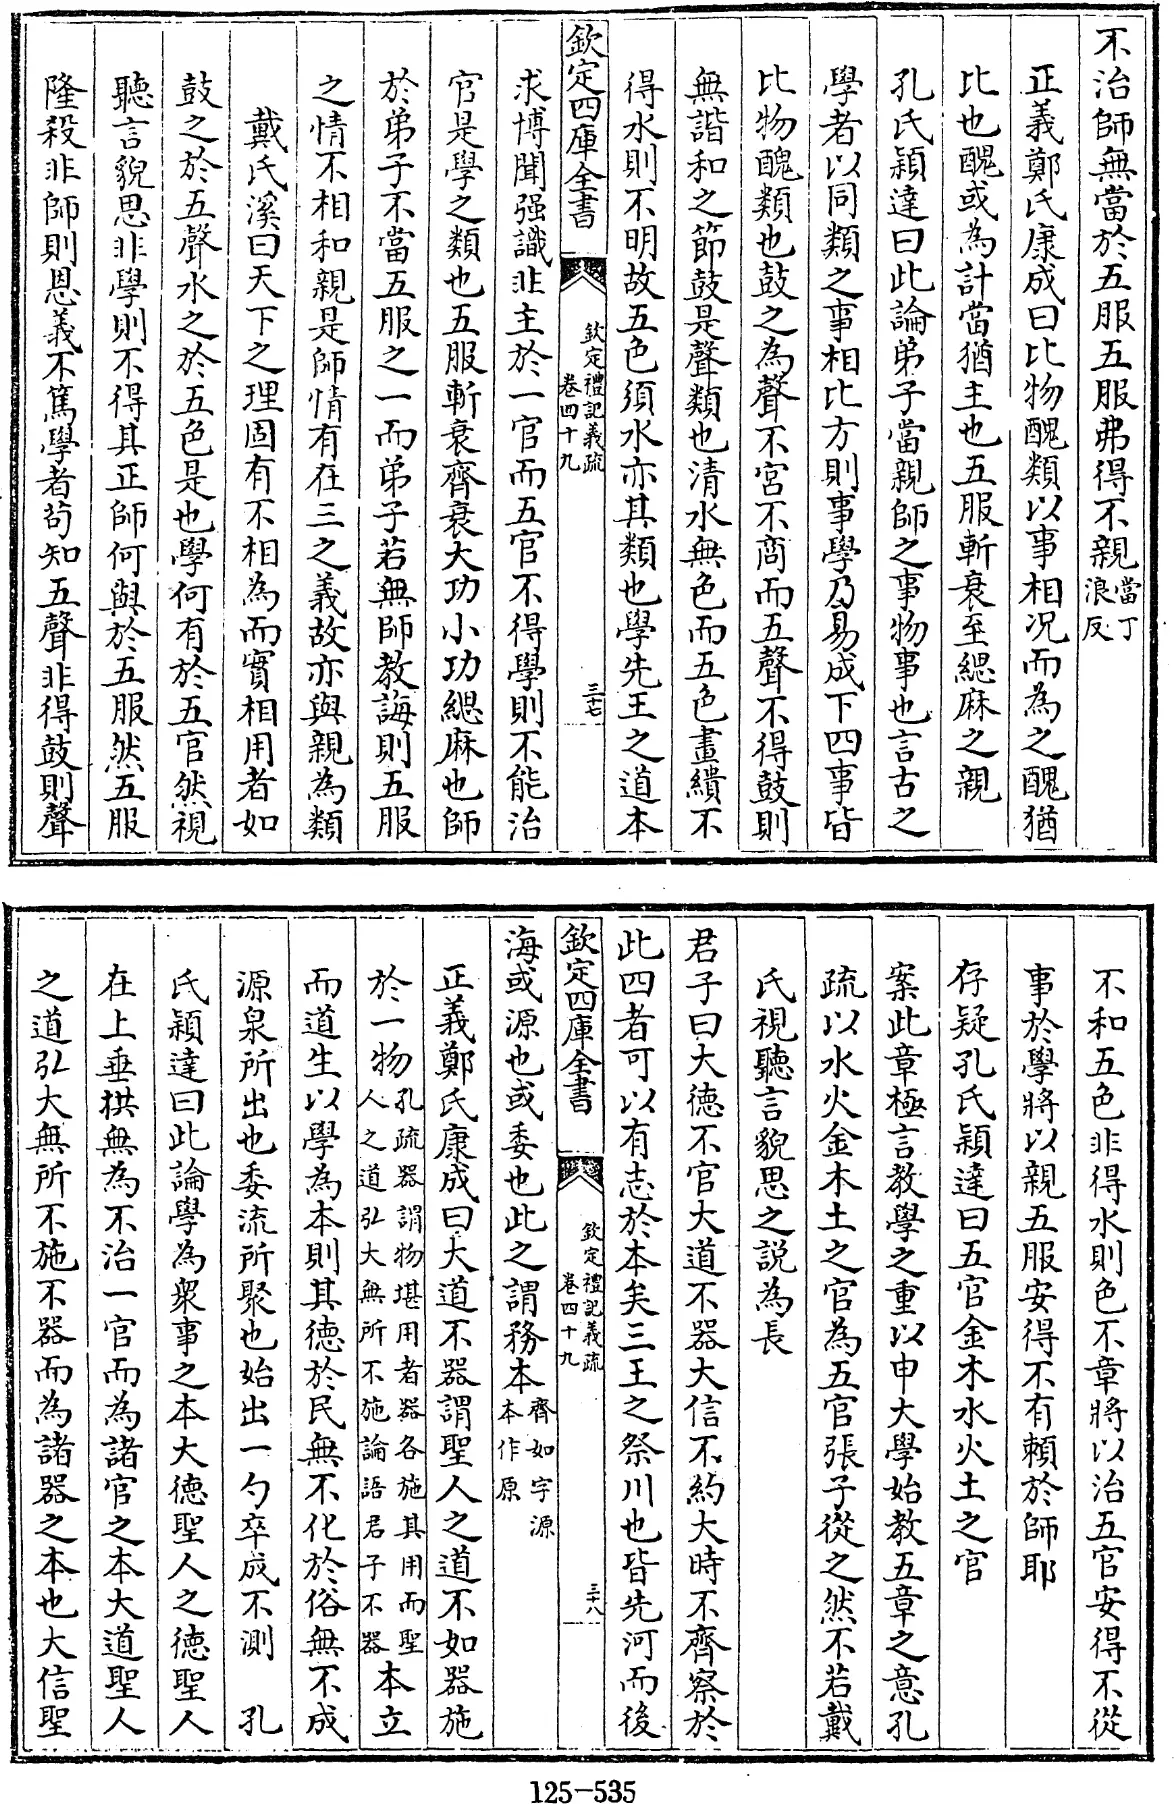 不治師無當於五服五服弗得不親當丁浪反
正義鄭氏康成曰比物醜類以事相况而為之醜猶
比也醜或為計當猶主也五服斬衰至緦麻之親
孔氏穎達曰此論弟子當親師之事物事也言古之
學者以同類之事相比方則事學乃易成下四事皆
比物醜類也鼓之為聲不宮不商而五聲不得鼓則
無諧和之節鼓是聲類也清水無色而五色畫繢不
得水則不明故五色須水亦其類也學先王之道本
欽定四庫全書
欽定禮記義疏
卷四十九
三十七
求博聞强識非主於一官而五官不得學則不能治
官是學之類也五服斬衰齊衰大功小功緦麻也師
於弟子不當五服之一而弟子若無師教誨則五服
之情不相和親是師情有在三之義故亦與親為類
戴氏溪曰天下之理固有不相為而實相用者如
鼓之於五聲水之於五色是也學何有於五官然視
聽言貌思非學則不得其正師何與於五服然五服
隆殺非師則恩義不篤學者茍知五聲非得鼓則聲
不和五色非得水則色不章將以治五官安得不從
事於學將以親五服安得不有賴於師耶
存疑孔氏穎達曰五官金木水火土之官
案此章極言教學之重以申大學始教五章之意孔
疏以水火金木土之官為五官張子從之然不若戴
氏視聽言貌思之說為長
君子曰大德不官大道不器大信不約大時不齊察於
此四者可以有志於本矣三王之祭川也皆先河而後
欽定四庫全書
欽定禮記義疏
卷四十九
三十八
海或源也或委也此之謂務本齊如字源本作原
正義鄭氏康成曰大道不器謂聖人之道不如器施
於一物孔疏器謂物堪用者器各施其用而聖人之道弘大無所不施論語君子不器本立
而道生以學為本則其德於民無不化於俗無不成
源泉所出也委流所聚也始出一勺卒成不測　孔
氏穎達曰此論學為衆事之本大德聖人之德聖人
在上垂拱無為不治一官而為諸官之本大道聖人
之道弘大無所不施不器而為諸器之本也大信聖
125-535